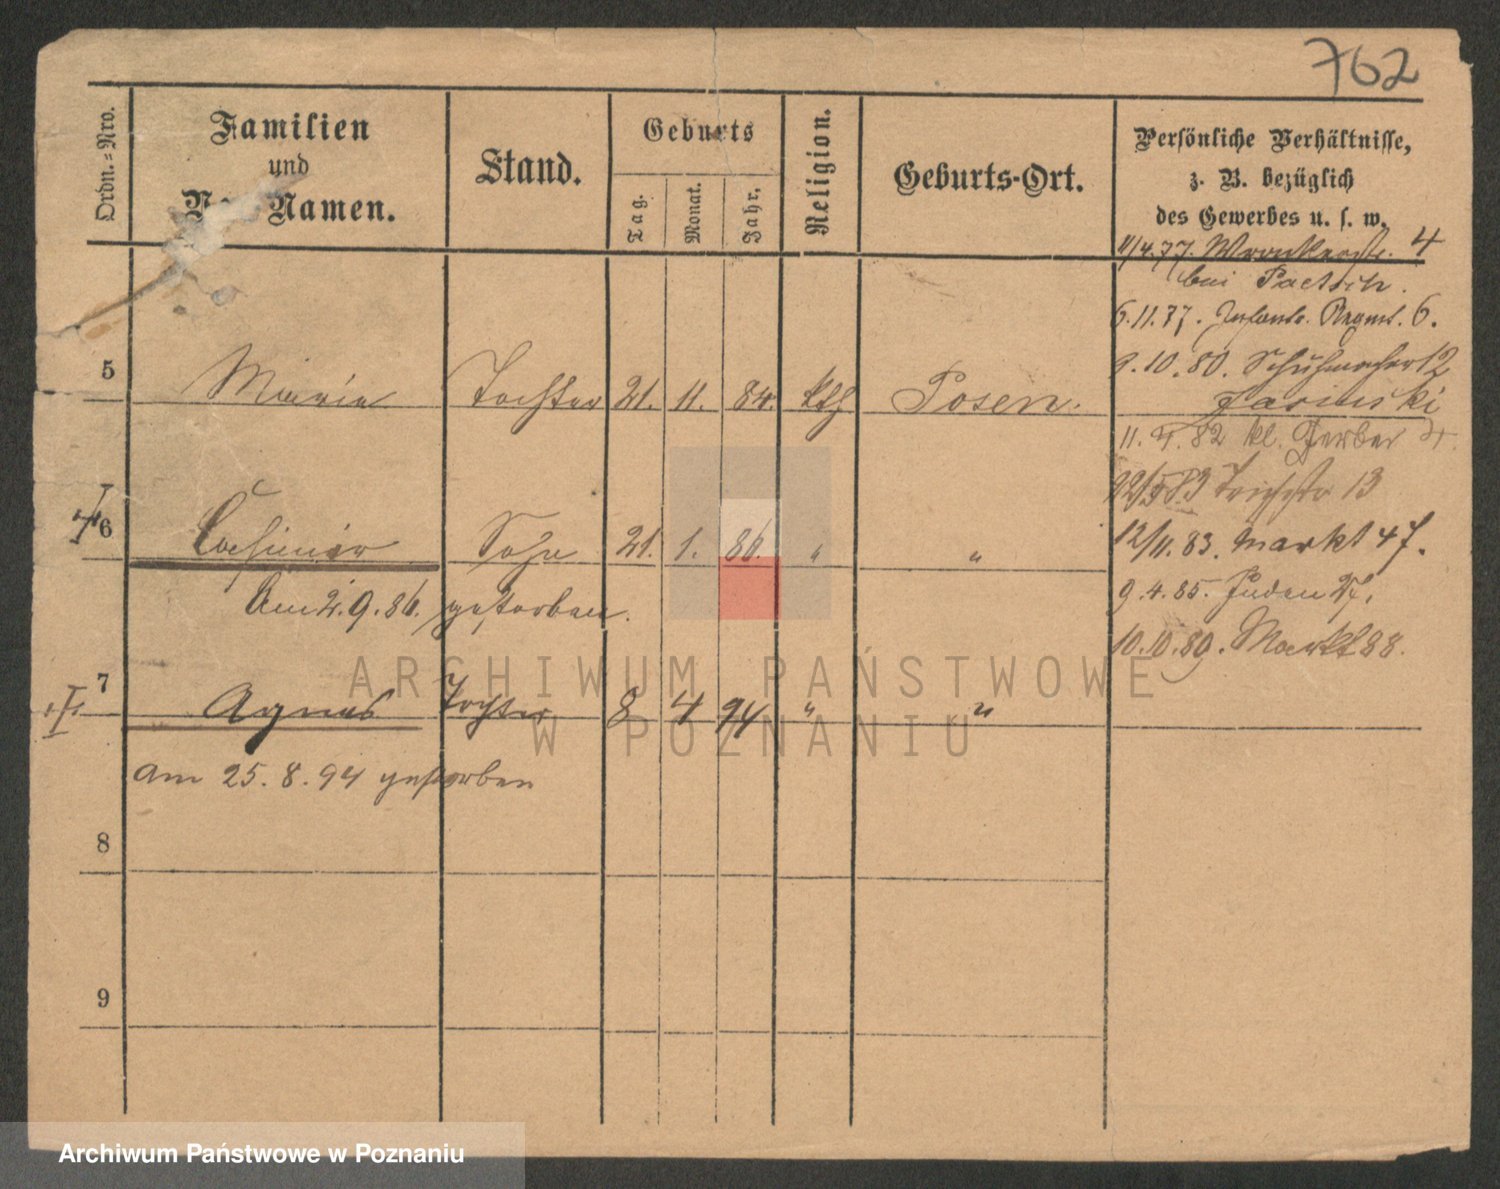 762
Ordn.=Nro.
Familien
und
Namen.
Stand.
Geburts
Tag.
Monat.
Jahr.
Religion.
Geburts-Ort.
Persönliche Verhältnisse,
z. B. bezüglich
des Gewerbes u. s. w.
11/4.77. Wronkerstr. 4
bei
6.11.77. Infantr. Regmt. 6.
5 Maria Tochter 21. 11. 84. kth Posen.
9.10.80. Schuhmacher 12
Jasinski
11. 82 kl. Gerber
83 13
6 Casimir Sohn 21. 1. 86. " "
12/11.83. Markt 47.
Am 2.9.86. gestorben.
9.4.85. Juden
10.10.89. Markt 88.
7 Agnes Tochter 8 4 94 " "
am 25.8.94 gestorben
8
9
ARCHIWUM PAŃSTWOWE
W POZNANIU
Archiwum Państwowe w Poznaniu